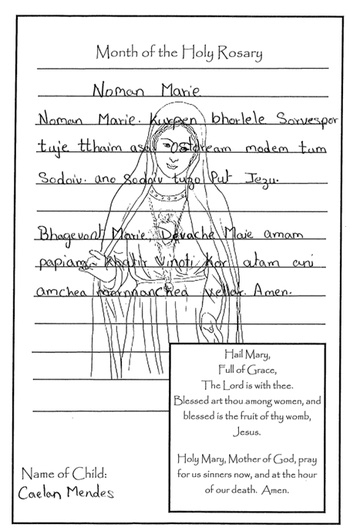 Month of the Holy Rosary
Noman Marie
Noman Marie. Kurpen bhorlele Sorvespor
tuje tthaim asa. Ostoream modem tum
Sodoiv. ano Sodoiv tuzo Put Jezu.
Bhagevont Marie, Devache Maie amam
papiam. Khatir Vinoti Kor atam ani
amchea mornanchea vellar. Amen.
Hail Mary,
Full of Grace,
The Lord is with thee.
Blessed art thou among women, and
blessed is the fruit of thy womb,
Jesus.
Holy Mary, Mother of God, pray
for us sinners now, and at the hour
of our death. Amen.
Name of Child:
Caelan Mendes